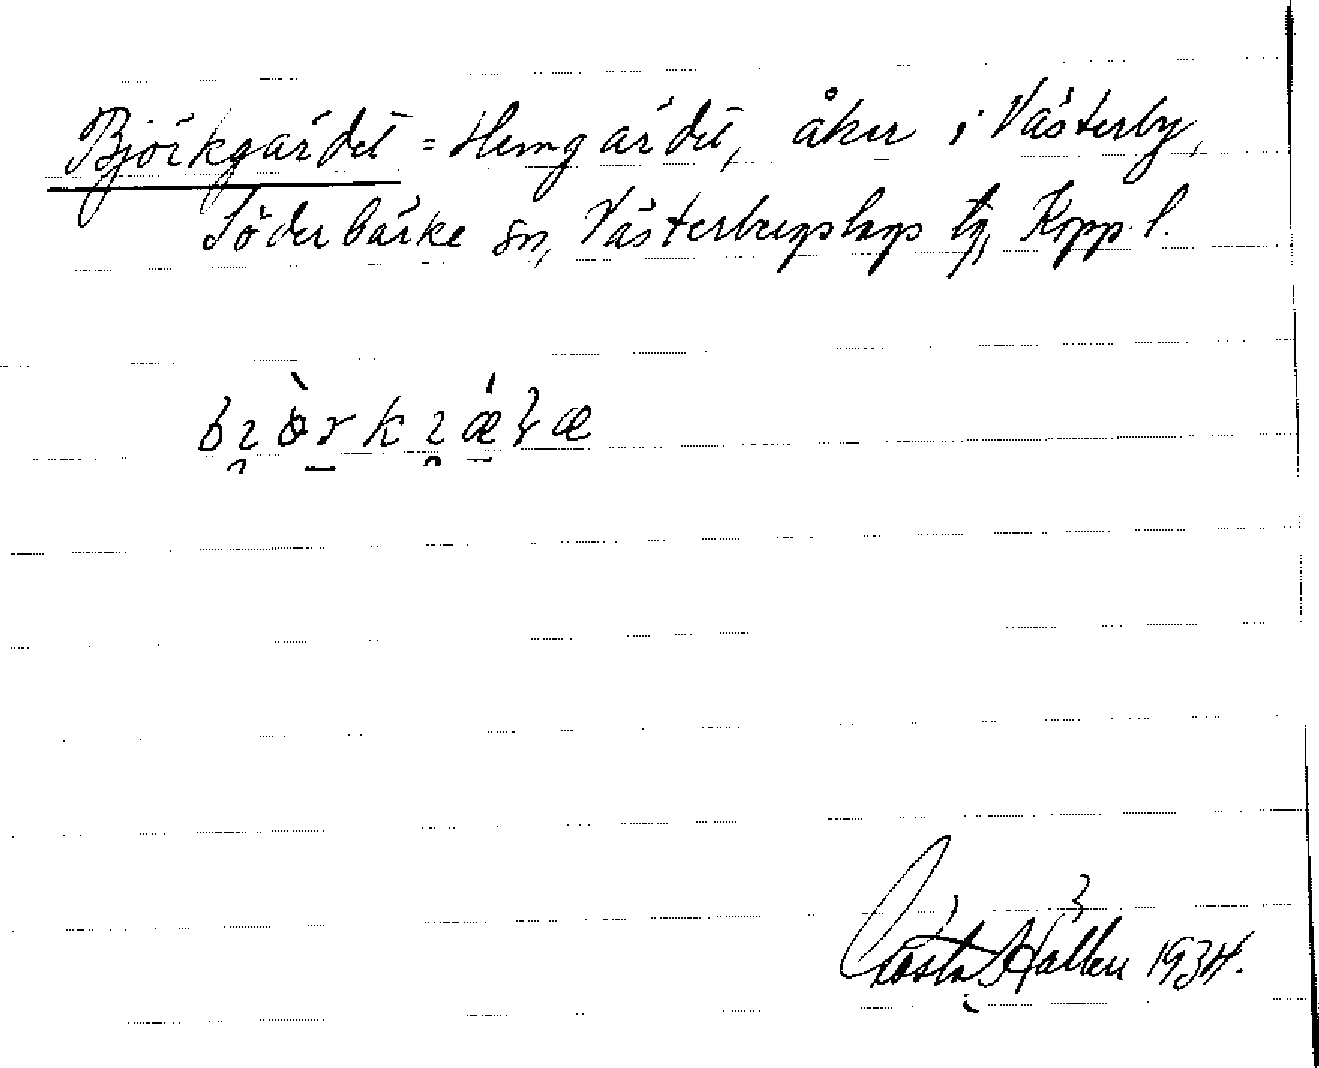 Björkgärdet = Hemgärdet, åker i Västerby,
Söderbärke sn, Västerbergslags tg, Kopp. l.
Gösta Hallén 1934.